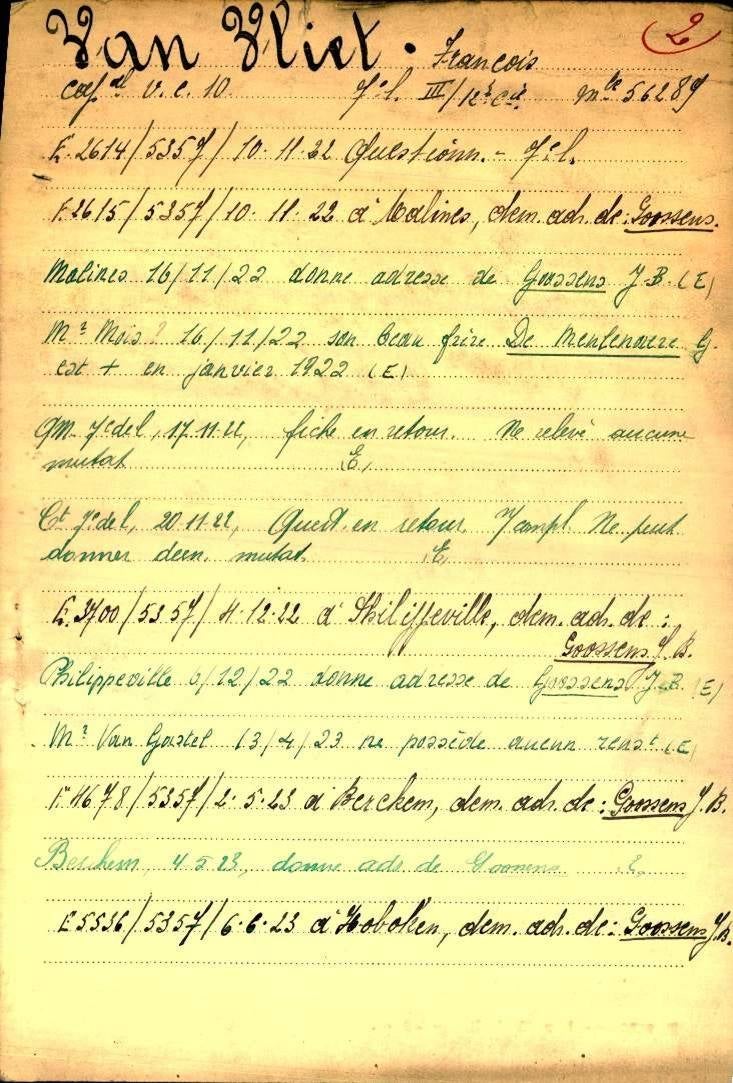 Van Vliet. François 2
V. C. 10. III/ Mle 56289
E. 2614/5357/10.11.22 Questionn. -
E. 2615/5357/10.11.22 à Malines, dem. adr. de: Goossens.
Malines 16/11/22 donne adresse de Goossens J-B. (E)
Mr Mois? 16/11/22 son beau frère De Meulenaere G.
est + en janvier 1922 (E)
17.11.22, fiche en retour. Ne relève aucune
mutat (E)
20.11.22, Quest. en retour. Ne peut
donner mutat. (E)
E. 3700/5357/4.12.22 à Philippeville, dem. adr. de:
Goossens J. B.
Philippeville 6/12/22 donne adresse de Goossens J-B. (E)
Mr Van Gastel 13/4/23 ne possède aucun renst (E)
E 4678/5357/2.5.23 à Berchem, dem. adr. de: Goossens J. B.
Berchem, 4.5.23, donne adr. de Goossens E.
E 5536/5357/6.6.23 à Hoboken, dem. adr. de: Goossens J. B.